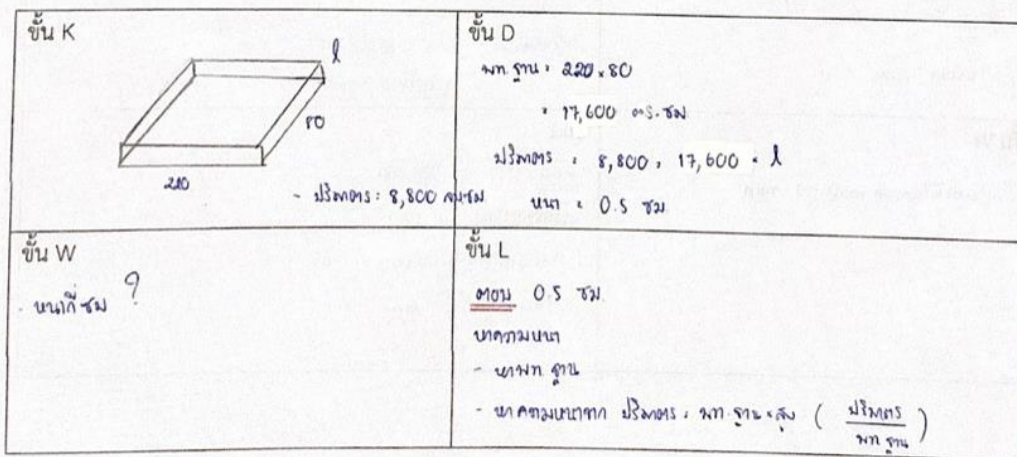 ขั้น K
l
80
220
- ปริมาตร = 8,800 ลบ.ซม
ขั้น D
พท. ฐาน = 220 × 80
= 17,600 ตร.ซม
ปริมาตร = 8,800 = 17,600 × l
หนา = 0.5 ซม.
ขั้น W
- หนากี่ ซม ?
ขั้น L
ตอบ 0.5 ซม.
หาความหนา
- หาพท. ฐาน
- หาความหนาจาก ปริมาตร = พท. ฐาน × สูง ( ปริมาตร
พท. ฐาน )